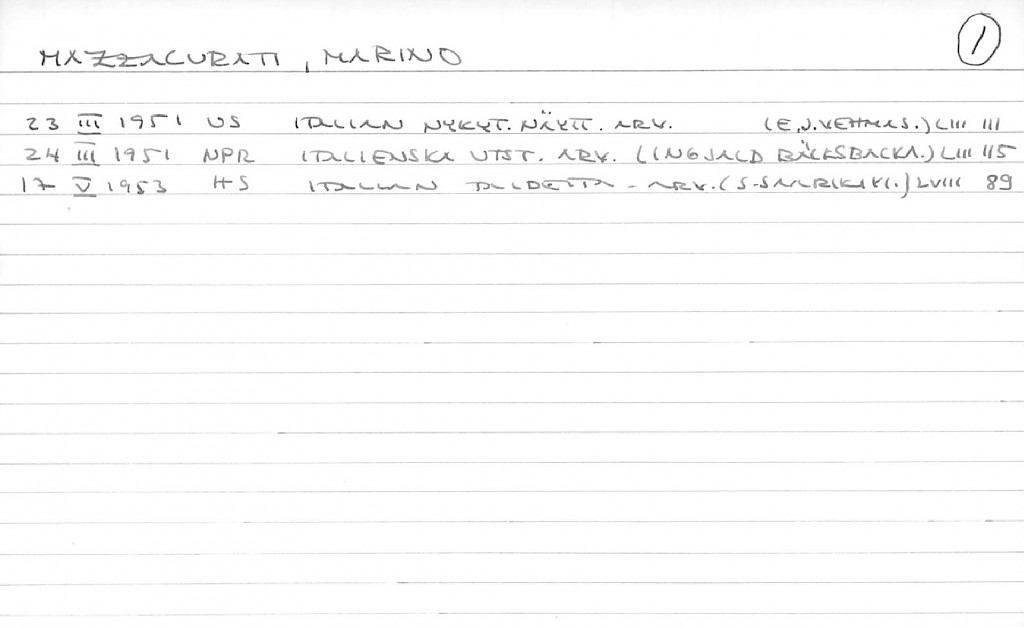 1
MAZZACURATI, MARINO
23 III 1951 US ITALIAN NYKYT. NÄYTT. ARV. (E.J. VEHMAS.) LIII 111
24 III 1951 NPR ITALIENSKA UTST. ARV. (INGJALD BÄCKSBACKA.) LIII 115
17 V 1953 HS ITALIAN TAIDETTA - ARV. (S-SAARIKIVI.) LVIII 89